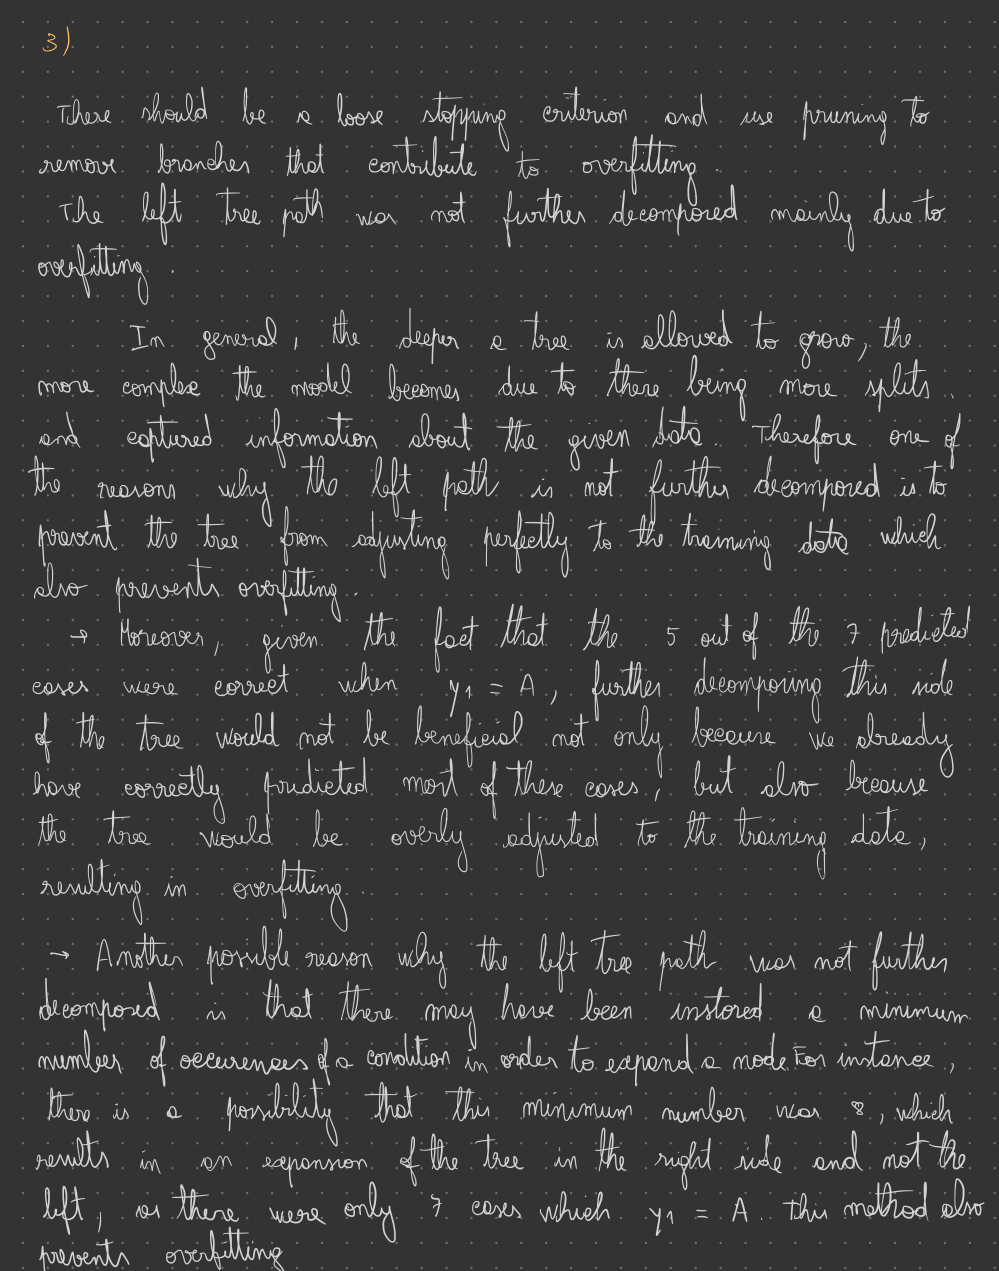 3)
There should be a loose stopping criterion and use pruning to
remove branches that contribute to overfitting.
The left tree path was not further decomposed mainly due to
overfitting.
In general, the deeper a tree is allowed to grow, the
more complex the model becomes due to there being more splits
and captured information about the given data. Therefore one of
the reasons why the left path is not further decomposed is to
prevent the tree from adjusting perfectly to the training data which
also prevents overfitting.
→ Moreover, given the fact that the 5 out of the 7 predicted
cases were correct when y1 = A, further decomposing this side
of the tree would not be beneficial not only because we already
have correctly predicted most of these cases, but also because
the tree would be overly adjusted to the training data,
resulting in overfitting.
→ Another possible reason why the left tree path was not further
decomposed is that there may have been instored a minimum
number of occurences of a condition in order to expand a node. For instance,
there is a possibility that this minimum number was 8, which
results in an expansion of the tree in the right side and not the
left, as there were only 7 cases which y1 = A. This method also
prevents overfitting